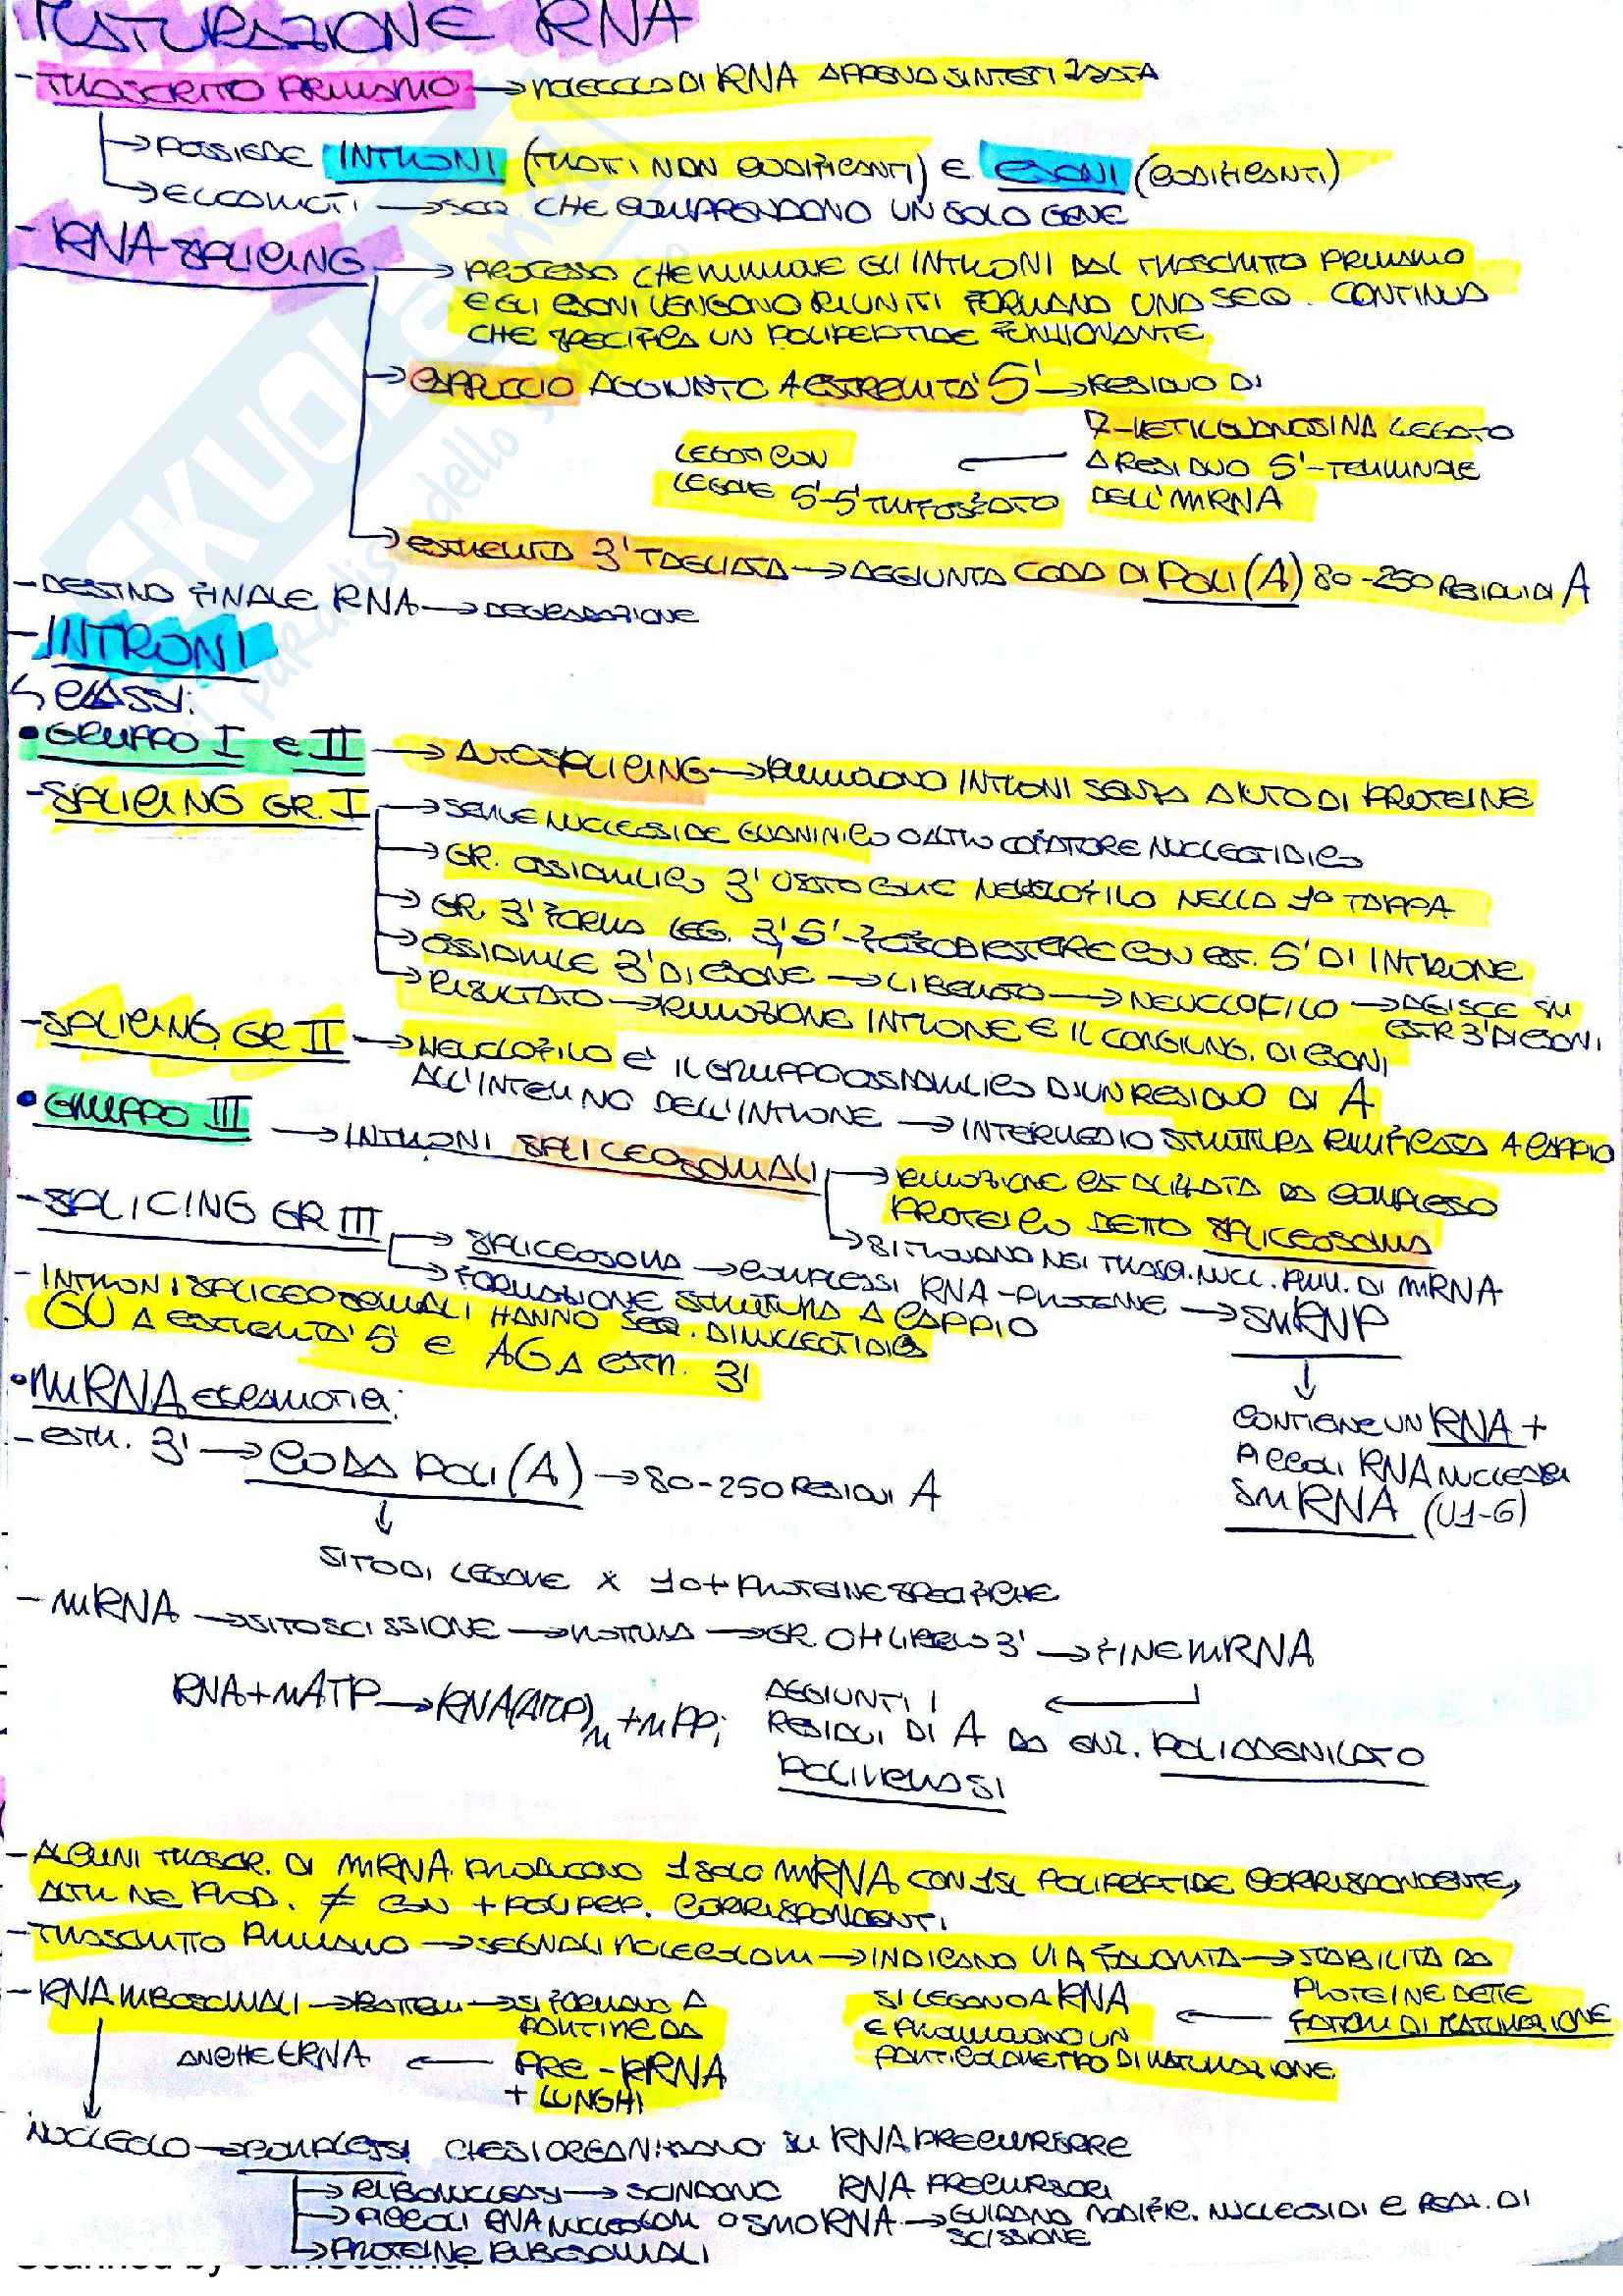 MATURAZIONE RNA
- TRASCRITTO PRIMARIO → MOLECOLA DI RNA APPENA SINTETIZZATA
→ POSSIEDE INTRONI (TRATTI NON CODIFICANTI) E ESONI (CODIFICANTI)
→ EUCARIOTI → SEQ. CHE COMPRENDONO UN SOLO GENE
- RNA SPLICING → PROCESSO CHE RIMUOVE GLI INTRONI DAL TRASCRITTO PRIMARIO
E GLI ESONI VENGONO RIUNITI FORMANO UNA SEQ. CONTINUA
CHE SPECIFICA UN POLIPEPTIDE FUNZIONANTE
→ CAPPUCCIO AGGIUNTO A ESTREMITÀ 5' → RESIDUO DI
7-METILGUANOSINA LEGATO
A RESIDUO 5'-TERMINALE
DELL'MRNA
LEGATI CON
LEGAME 5'-5' TRIFOSFATO
→ ESTREMITÀ 3' TAGLIATA → AGGIUNTA CODA DI POLI(A) 80-250 RESIDUI DI A
- DESTINO FINALE RNA → DEGRADAZIONE
- INTRONI
↳ CLASSI:
• GRUPPO I E II → AUTOSPLICING → RIMUOVONO INTRONI SENZA AIUTO DI PROTEINE
- SPLICING GR. I → SERVE NUCLEOSIDE GUANINICO O ALTRO COFATTORE NUCLEOTIDICO
→ GR. OSSIDRILICO 3' USATO COME NEUCLOFILO NELLA 1° TAPPA
→ GR 3' FORMA LEG. 3',5'-FOSFODIESTERE CON EST. 5' DI INTRONE
→ OSSIDRILE 3' DI ESONE → LIBERATO → NEUCLOFILO → AGISCE SU
ESTR 3' DI ESONI
→ RISULTATO → RIMOZIONE INTRONE E IL CONGIUNG. DI ESONI
- SPLICING GR II → NEUCLOFILO È IL GRUPPO OSSIDRILICO DI UN RESIDUO DI A
ALL'INTERNO DELL'INTRONE → INTERMEDIO STRUTTURA RAMIFICATA A CAPPIO
• GRUPPO III → INTRONI SPLICEOSOMALI → RIMOZIONE CATALIZZATA DA COMPLESSO
PROTEICO DETTO SPLICEOSOMA
→ SI TROVANO NEI TRASCR. NUCL. PRIM. DI MRNA
- SPLICING GR III → SPLICEOSOMA → COMPLESSI RNA-PROTEINE → SNRNP
→ FORMAZIONE STRUTTURA A CAPPIO
- INTRONI SPLICEOSOMALI HANNO SEQ. DINUCLEOTIDICA
GU A ESTREMITÀ 5' E AG A ESTR. 3'
↓
CONTIENE UN RNA +
PICCOLI RNA NUCLEARI
SNRNA (U1-6)
• MRNA EUCARIOTICI:
- ESTR. 3' → CODA POLI(A) → 80-250 RESIDUI A
↓
SITO DI LEGAME X 10+ PROTEINE SPECIFICHE
- MRNA → SITO SCISSIONE → ROTTURA → GR. OH LIBERO 3' → FINE MRNA
AGGIUNTI I
RESIDUI DI A DA ENZ. POLIADENILATO
POLIMERASI
RNA + nATP → RNA(AMP)n + nPPi
- ALCUNI TRASCR. DI MRNA PRODUCONO 1 SOLO MRNA CON 1SL POLIPEPTIDE CORRISPONDENTE,
ALTRI NE PROD. ≠ CON + POLIPEP. CORRISPONDENTI.
- TRASCRITTO PRIMARIO → SEGNALI MOLECOLARI → INDICANO VIA FAVORITA → STABILITA DA
PROTEINE DETTE
FATTORI DI MATURAZIONE
SI LEGANO A RNA
E PROMUOVONO UN
PARTICOLARE TIPO DI MATURAZIONE
- RNA RIBOSOMIALI → BATTERI → SI FORMANO A
PARTIRE DA
PRE-RRNA
+ LUNGHI
ANCHE TRNA
NUCLEOLO → COMPLESSI CHE SI ORGANIZZANO SU RNA PRECURSORE
→ RIBONUCLEASI → SCINDONO RNA PRECURSORI
→ PICCOLI RNA NUCLEOLARI O SNORNA → GUIDANO MODIFIC. NUCLEOSIDI E REAZ. DI
SCISSIONE
→ PROTEINE RIBOSOMIALI
SKUOLA.net
il paradiso dello studente
Scanned by CamScanner